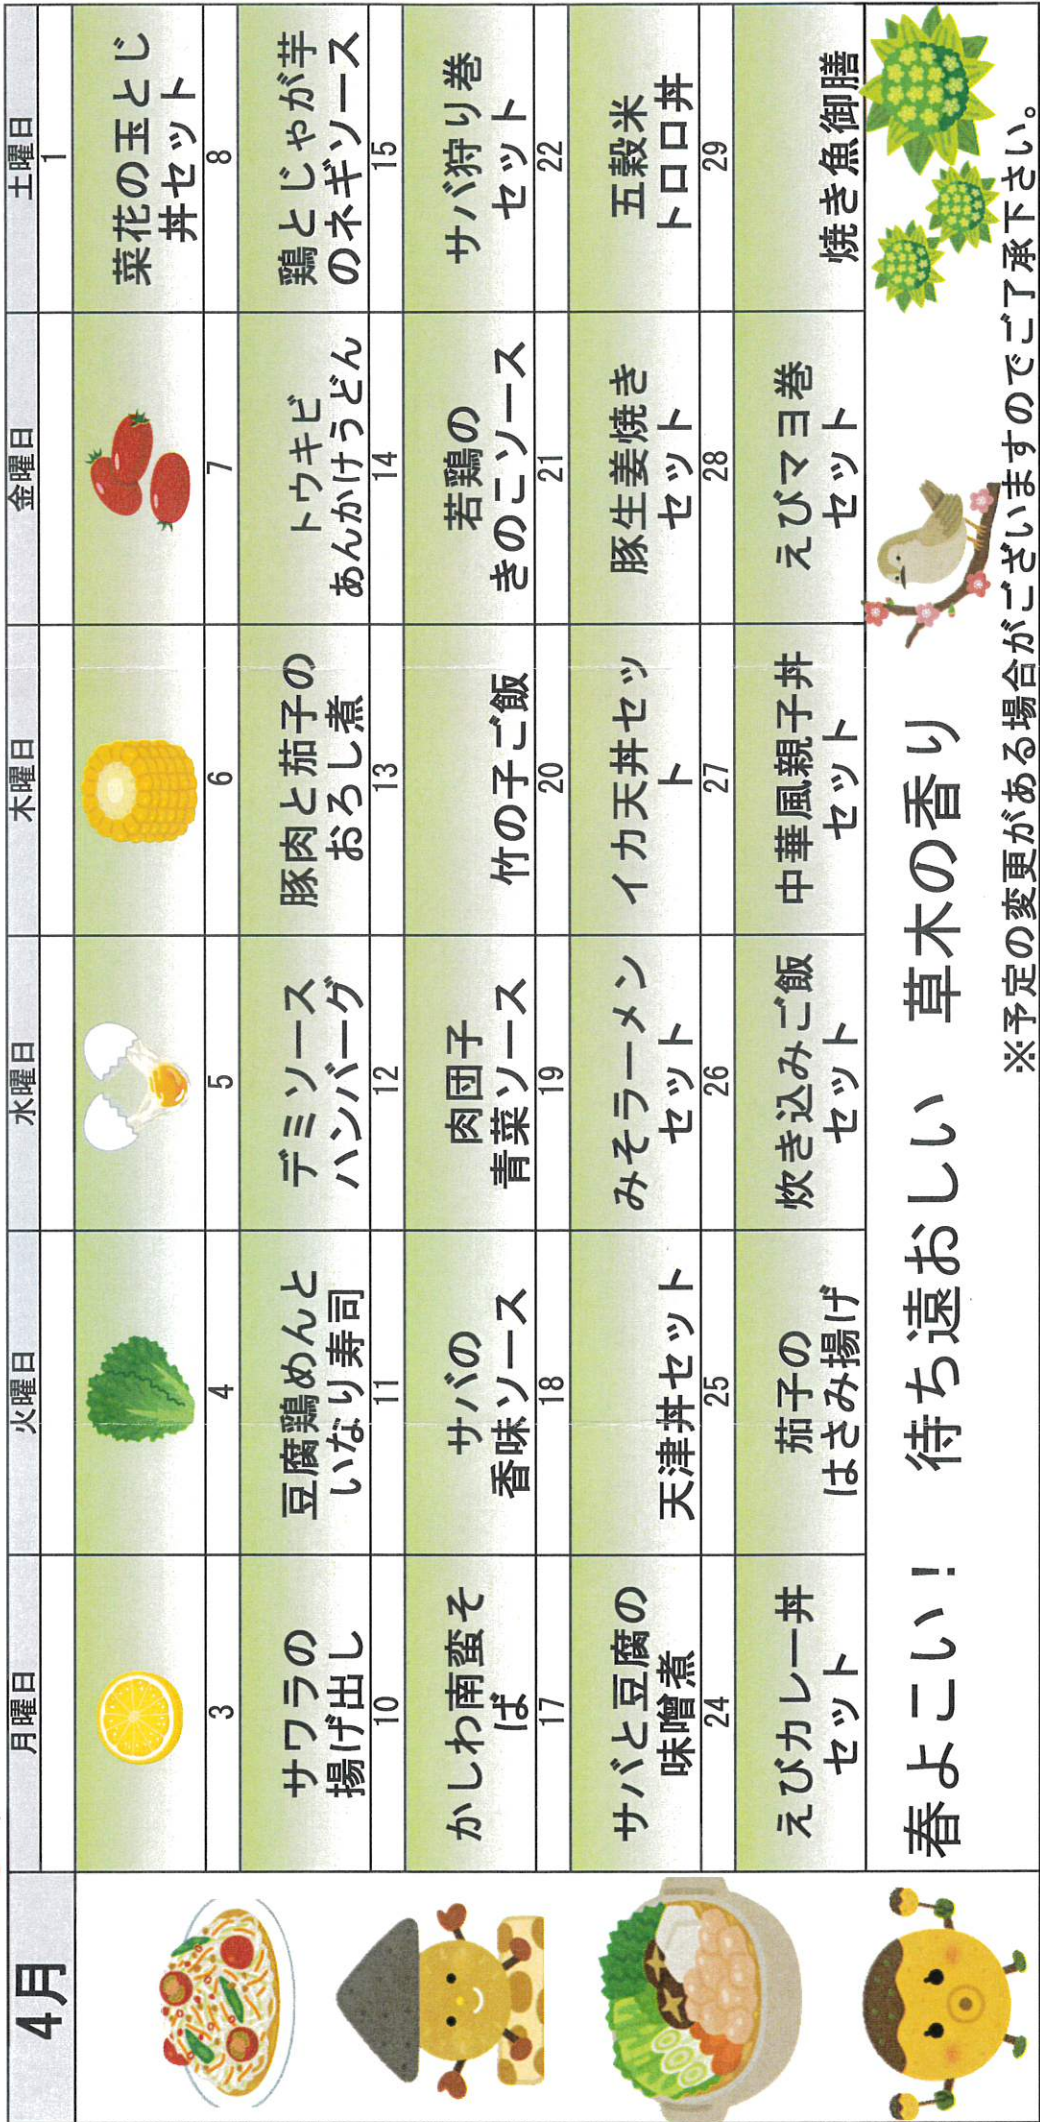 4月
月曜日 火曜日 水曜日 木曜日 金曜日 土曜日
1
菜花の玉とじ
丼セット
3 4 5 6 7 8
サワラの
揚げ出し
豆腐鶏めんと
いなり寿司
デミソース
ハンバーグ
豚肉と茄子の
おろし煮
トウキビ
あんかけうどん
鶏とじゃが芋
のネギソース
10 11 12 13 14 15
かしわ南蛮そ
ば
サバの
香味ソース
肉団子
青菜ソース
竹の子ご飯
若鶏の
きのこソース
サバ狩り巻
セット
17 18 19 20 21 22
サバと豆腐の
味噌煮
天津丼セット
みそラーメン
セット
イカ天丼セッ
ト
豚生姜焼き
セット
五穀米
トロロ丼
24 25 26 27 28 29
えびカレー丼
セット
茄子の
はさみ揚げ
炊き込みご飯
セット
中華風親子丼
セット
えびマヨ巻
セット
焼き魚御膳
春よこい！ 待ち遠おしい 草木の香り
※予定の変更がある場合がございますのでご了承下さい。